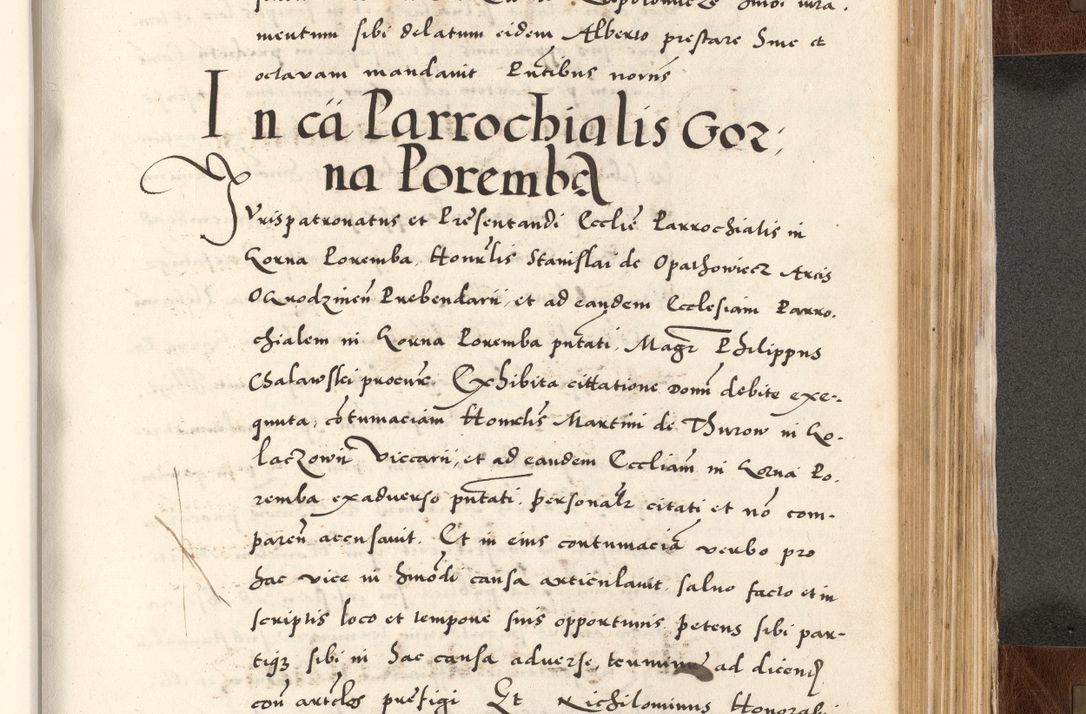 mentum sibi delatum eidem Alberto prestare Sme et
octavam mandavit Pntibus norns
In cā Parrochialis Gor-
na Poremba
Jurispatronatus et Presentandi Ecclie Parrochialis in
Gorna Poremba, Honorlis Stanislai de Opathowiecz Arcis
Ogrodzinen Prebendarii, et ad eandem Ecclesiam Parro-
chialem in Gorna Poremba pntati, Magr Philippus
Chalawski procur. Exhibita cittatione Domi debite exe-
quuta, cotumaciam Honorlis Martini de Thurow in Go-
laczowi Viccarii, et ad eandem Eccliam in Gorna Po-
remba exadverso pntati, personalr citati et no com-
paren accusavit. Et in eius contumacia verbo pro
hac vice in hmodi causa articulavit, salvo facto et in
scriptis loco et tempore suis opportunis petens sibi par-
tiqz sibi in hac causa adverse, terminum ad dicend
con artclos prefigi Et Nichilominus Honorabi